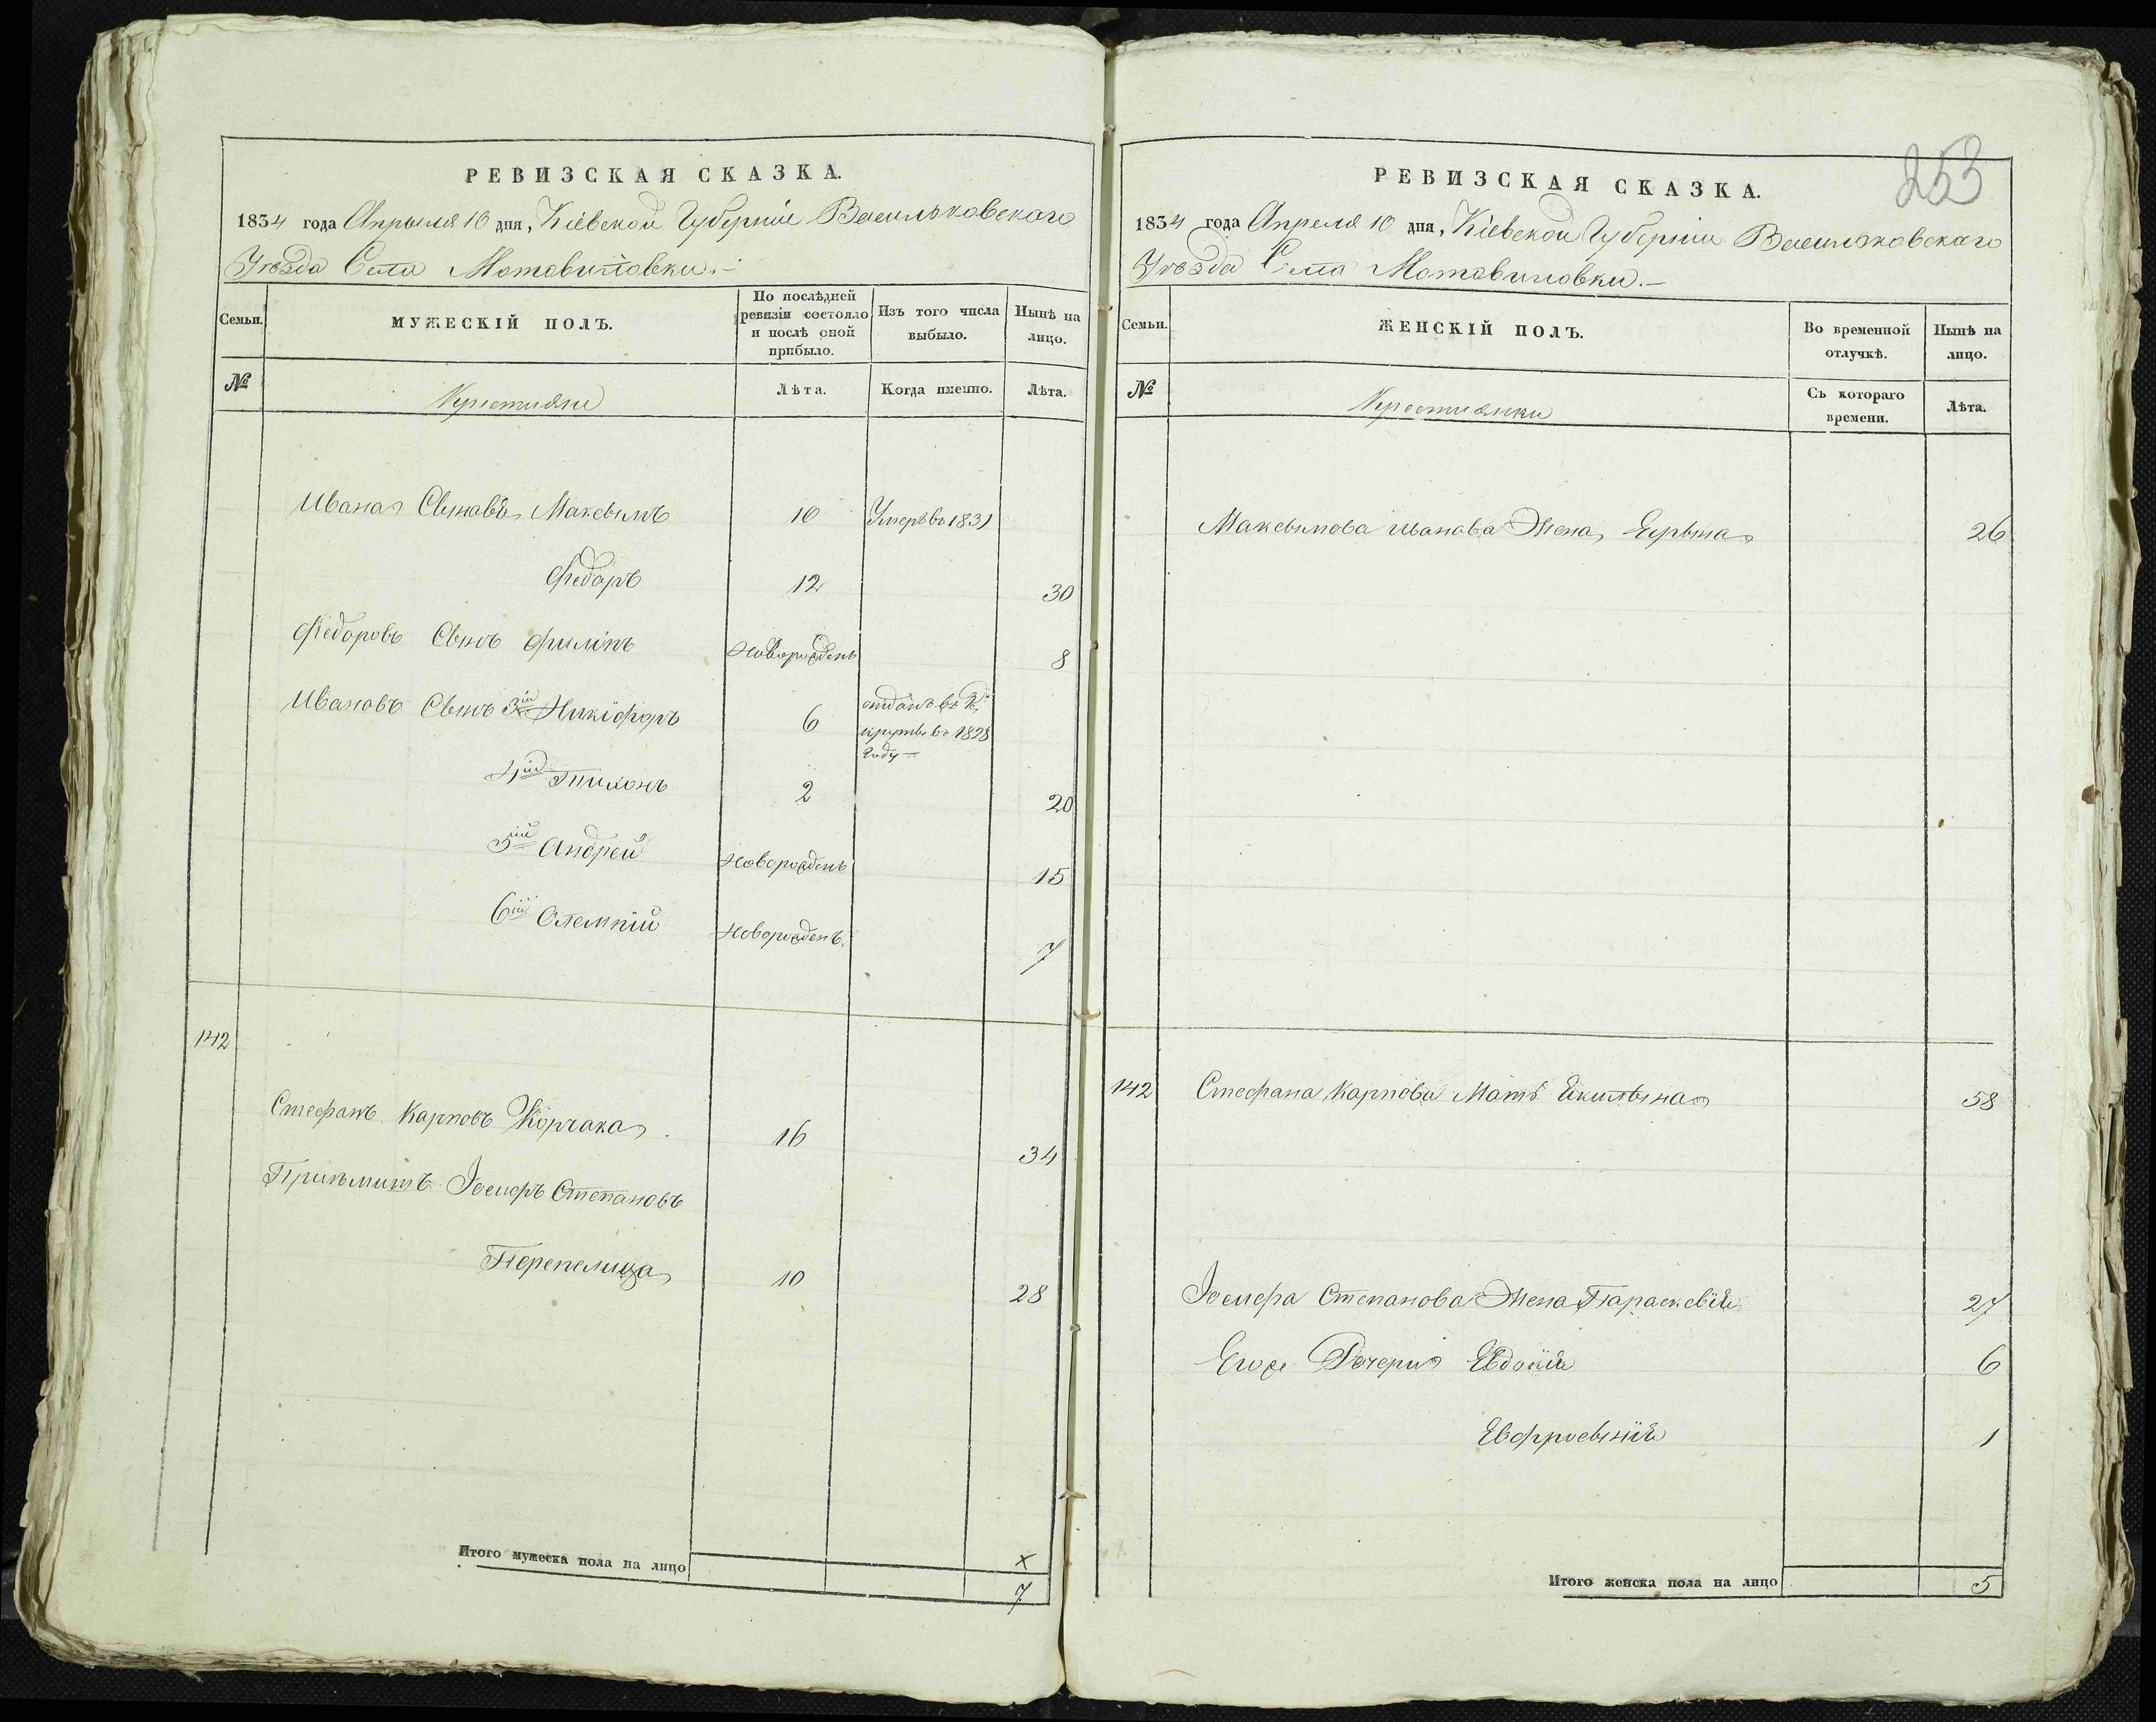 РЕВИЗСКАЯ СКАЗКА.
1834 года Апрыля 10 дня, Кіевской Губерніи Васильковскаго
Уѣзда Села Мотовиловки.-
Семьи.
МУЖЕСКІЙ ПОЛЪ.
По послѣдней
ревизіи состояло
и послѣ оной
прибыло.
Изъ того числа
выбыло.
Нынѣ на
лицо.
№
Крестияне
Лѣта.
Когда именно.
Лѣта.
Ивана Сыновья Максымъ 10 Умеръ въ 1831
Федоръ 12 30
Федоровъ Сынъ Филипъ Новорожденъ 8
Ивановъ Сынъ 3ій Никифоръ 6 отданъ въ ре
круты въ 1828
году
4ій Тихонъ 2 20
5ій Андрей Новорожденъ 15
6ій Олемпій Новорожденъ. 7
142
Стефанъ Карповъ Корчака 16 34
Приймитъ Іосифъ Степановъ
Перепелица 10 28
Итого мужеска пола на лицо
7
253
РЕВИЗСКАЯ СКАЗКА.
1834 года Апреля 10 дня, Кіевской Губерніи Васильковскаго
Уѣзда Села Мотовиловки.-
Семьи.
ЖЕНСКІЙ ПОЛЪ.
Во временной
отлучкѣ.
Нынѣ на
лицо.
№
Крестиянки
Съ котораго
времени.
Лѣта.
Максымова Иванова Жена 26
142 Стефана Карпова Мать Акилына 58
Іосифа Степанова Жена Параскевія 27
Егоже Дочери Евдокія 6
Евфросынія 1
Итого женска пола на лицо 5